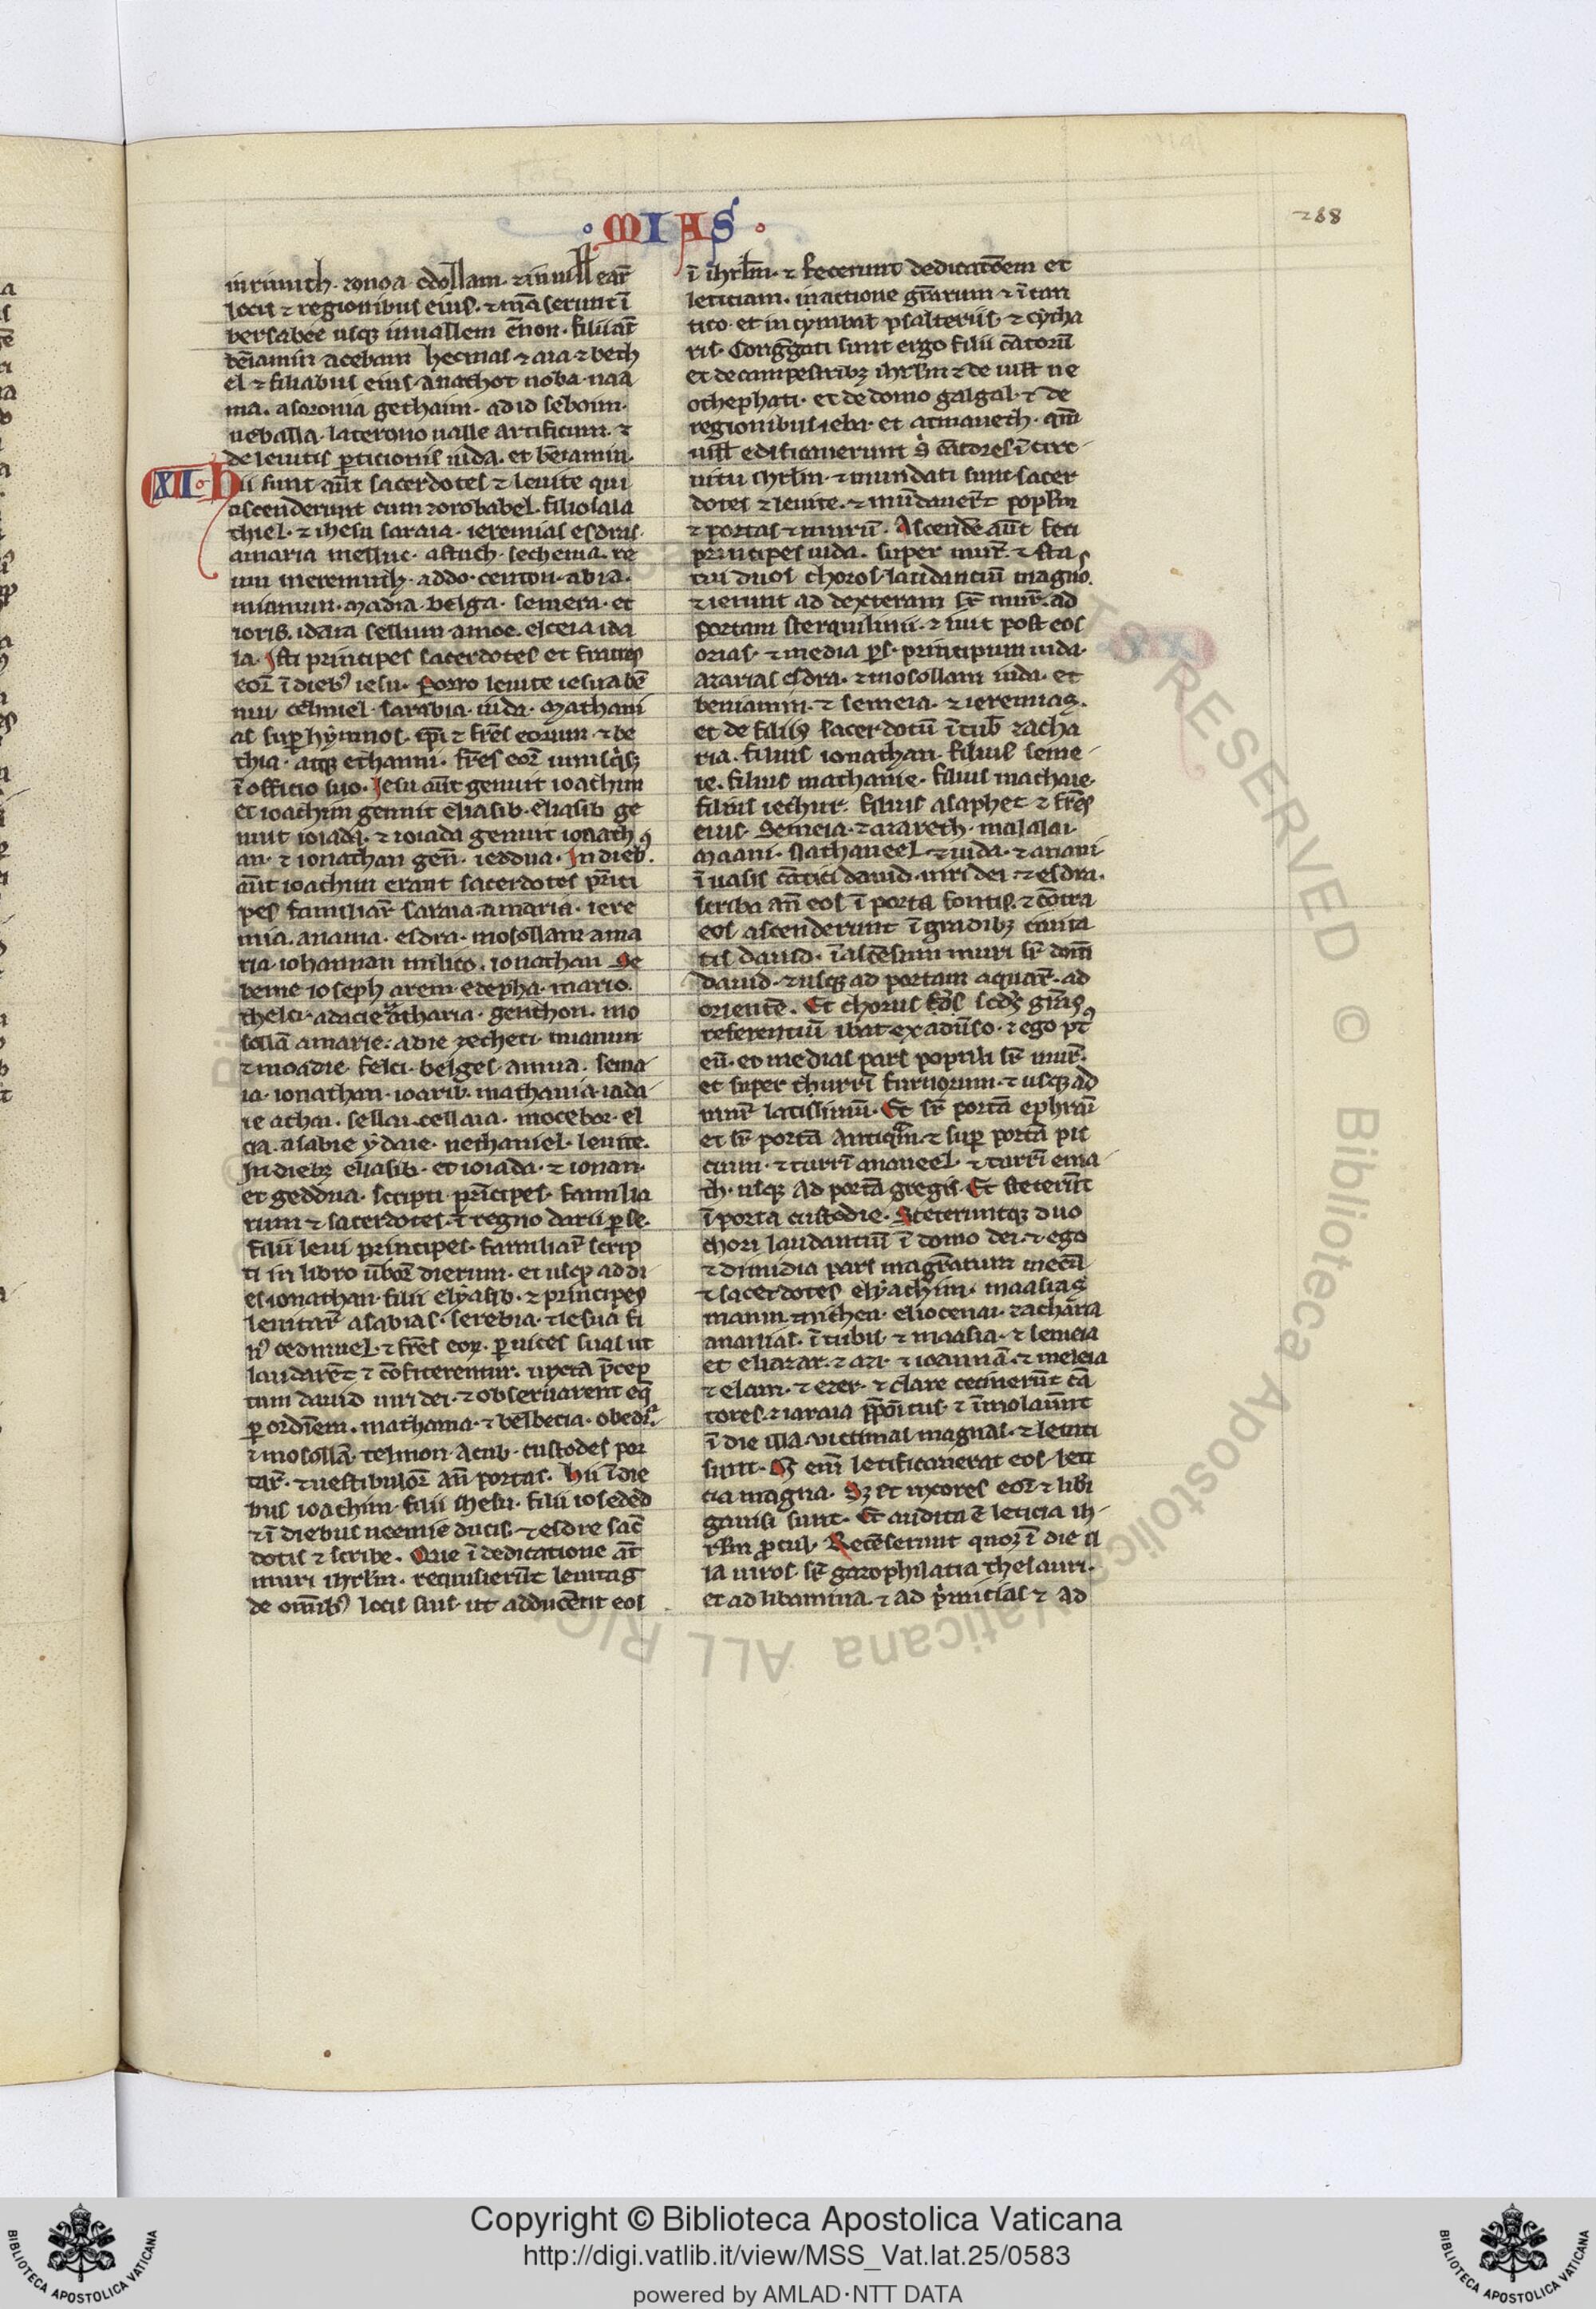 288
MIAS
in rimuth. zonoa odollam. ⁊ in uill ear̄
locis ⁊ regionibus eius. ⁊ māserunt ī
bersabee usqꝫ in uallem ēnon. filii aūt
bēiamin a cebam hecmas ⁊ aia ⁊ beth
el ⁊ filiabus eius. anathot noba. naa
ma. asoronia gethaim. adid seboim.
neballa. laterono ualle artificum. ⁊
de leuitis ꝑticionis iuda. et bēiamin.
XII hii sunt aūt sacerdotes ⁊ leuite qui
ascenderunt cum zorobabel. filio sala
thiel. ⁊ ihesu saraia. ieremias esdras.
amaria melluc. attuch. sechenia. re
um meremuth. addo. genton. abia.
miamun. madia. belga. semera. et
ioris. idaia sellum. amoe. elceia ida
ia. Isti principes sacerdotes et fratres
eoꝝ ī diebꝰ iesu. Porro leuite iesua bē
nui cedmuel. sarabia. iuda. mathani
as suꝑ hymnos. ip̄i ⁊ fr̄es eorum. ⁊ be
thia. atqꝫ ethanni. fr̄es eoꝝ unusq̇sqꝫ
ī officio suo. Iesu aūt genuit ioachim
et ioachim genuit eliasib. eliasib ge
nuit ioiada. ⁊ ioiada genuit ionath
an. ⁊ ionathan gen̄. ieddua. In diebꝰ.
aūt ioachim erant sacerdotes prīci
pes familiar̄ saraia. amaria. iere
mia. anania. esdra. mosollam ama
ria. iohannan milico. ionathan Se
benie ioseph arem. edepha. mario
thelci. adacie zacharia. genthon. mo
sollā amarie. abie zecheri. miamin
⁊ moadie. felci. belges. amua. sema
ia. ionathan. ioarib. mathania. iada
ie athai. sellai. cellaia. mocebor. el
cia. asabie ydaie. nethaniel. leuite.
In diebꝫ eliasib. et ioiada. ⁊ ionan.
et geddua. scripti prīcipes. familia
rum ⁊ sacerdotes. ī regno darii ꝑse.
filii leui principes. familiar̄ scrip
ti in libro ūboꝝ dierum. et usqꝫ ad di
es ionathan. filii elyasib. ⁊ principes
leuitar̄ asabias. serebia. ⁊ iesua fi
liꝰ cedmuel. ⁊ fr̄es eoꝝ. ꝑ uices suas ut
laudarēt ⁊ cōfiterentur. iuxta p̄cep
tum dauid uiri dei. ⁊ obseruarent eq̄
ꝑ ordinem. mathania. ⁊ belbecia. obedia
⁊ mosollā. telmon. acub. custodes por
tar̄. ⁊ uestibuloꝝ an̄ portas. Hii ī die
bus ioachim. filii ihesu. filii ioseded
⁊ ī diebus neemie ducis. ⁊ esdre sac̄
dotis ⁊ scribe. Que ī dedicatione aūt
muri ihrlm. requisierūt leuitas
de omībꝰ locis suis. ut adducerēt eos
ī ihrlm. ⁊ fecerunt dedicatōem et
leticiam. in actione gr̄arum ⁊ ī can
tico. et in cymbal psalteriis. ⁊ cytha
ris. Congregati sunt ergo filii cātorū
et de campestribꝫ ihrlm ⁊ de uill ne
thophati. et de domo galgal. ⁊ de
regionibus ieba. et atmaueth. qm̄
uill edificauerunt s̓ cātores ī circ
uitu ihrlm. ⁊ mundati sunt sacer
dotes ⁊ leuite. ⁊ mūdauer̄t poplm
⁊ portas ⁊ murū. Ascende aūt feci
principes iuda. super mur̄. ⁊ sta
tui duos choros laudanciū magnos.
⁊ ierunt ad dexteram sr̄ mur̄. ad
portam sterquilinii. ⁊ iuit post eos
osias. ⁊ media ꝑs. principum iuda.
azarias esdra. ⁊ mosollam iuda. et
beniamin. ⁊ semeia. ⁊ ieremias.
et de filiis sacerdotū ī tub̄ zacha
ria. filius ionathan. filius seme
ie. filius mathanie. filius machaie.
filius iechur. filius asaphet ⁊ fr̄es
eius. Semeia. ⁊ azareth. malalai.
maani. Nathaneel. ⁊ iuda. ⁊ anani
ī uasis cātici dauid. uiri dei ⁊ esdra.
scriba an̄ eos ī porta fontis. ⁊ cōtra
eos ascenderunt ī gradibꝫ ciuita
tis dauid. ī ascēsum muri sr̄ dom̄
dauid. ⁊ usqꝫ ad portam aquar̄. ad
orientē. Et chorus scd̄s gr̄as
referentiū ibat ex aduerso. ⁊ ego pꝰt
eū. et medias pars populi sr̄ mur̄.
et super thurrī furnorum. ⁊ usqꝫ ad
mur̄ latissimū. Et sr̄ portā ephraī
et sr̄ portā antiquam. ⁊ suꝑ portā pis
cium. ⁊ turrī ananeel. ⁊ turrī ema
th. usqꝫ ad portā gregis. Et steterūt
ī porta custodie. Steteruntqꝫ duo
chori laudantiū ī domo dei. ⁊ ego
⁊ dimidia pars magr̄atum mecū
⁊ sacerdotes elyachim. maasias
manin. michea. elioenai. zacharia
ananias. ī tubis. ⁊ maasia. ⁊ semeia
et eliazar. ⁊ azi. ⁊ ioannā. ⁊ meleia
⁊ elam. ⁊ ezer. ⁊ clare cecinerūt cā
tores. ⁊ iaraia ꝑpositus. ⁊ īmolauūt
ī die illa. uictimas magnas. ⁊ letati
sunt. Ds̄ eni letificauerat eos. leti
cia magna. Sꝫ et uxores eoꝝ ⁊ libi
gauisi sunt. Et audita ē leticia ih
rlm ꝓcul. Recēserunt quoqꝫ ī die il
la uiros. sr̄ gazophilatia thesauri.
et ad libamina. ⁊ ad p̓mitias ⁊ ad
Copyright © Biblioteca Apostolica Vaticana
http://digi.vatlib.it/view/MSS_Vat.lat.25/0583
powered by AMLAD·NTT DATA
BIBLIOTECA APOSTOLICA VATICANA
BIBLIOTECA APOSTOLICA VATICANA